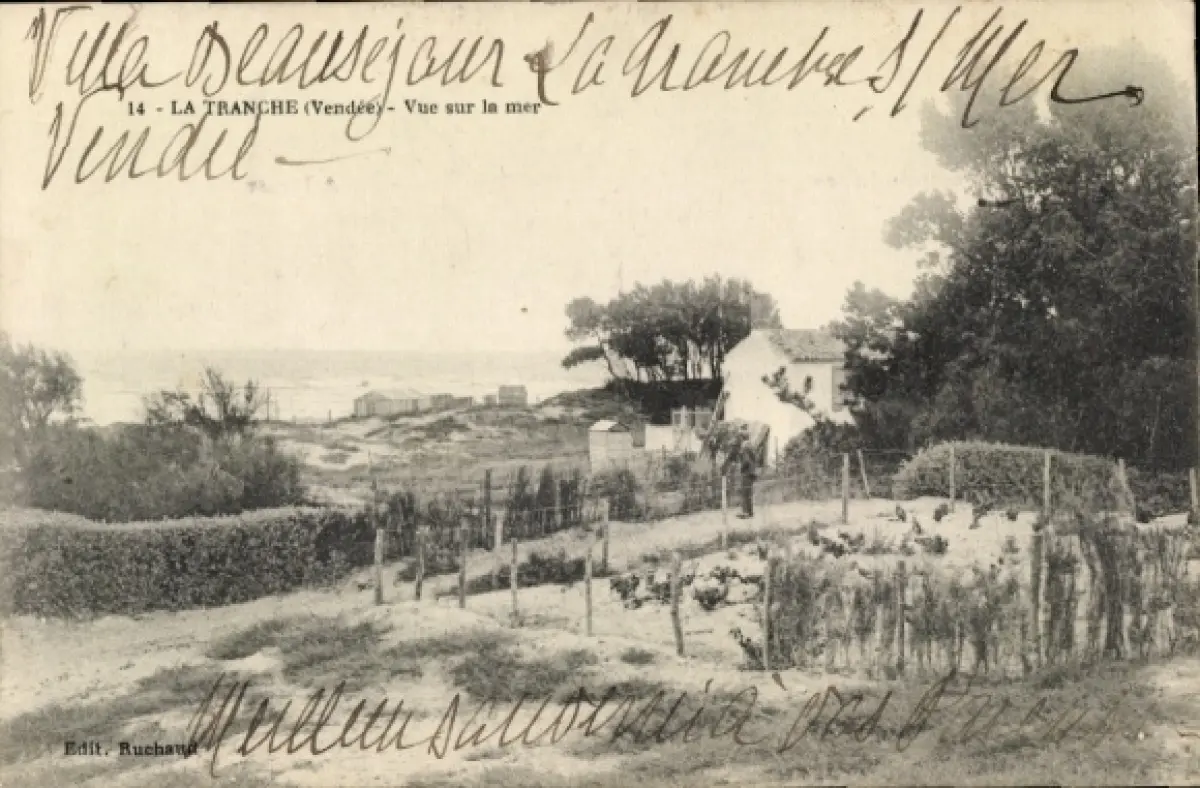 Villa Beauséjour La Tranche s/ Mer
14 - LA TRANCHE (Vendée) - Vue sur la mer
Vendée
Edit. Ruchaud
Meilleur souvenir